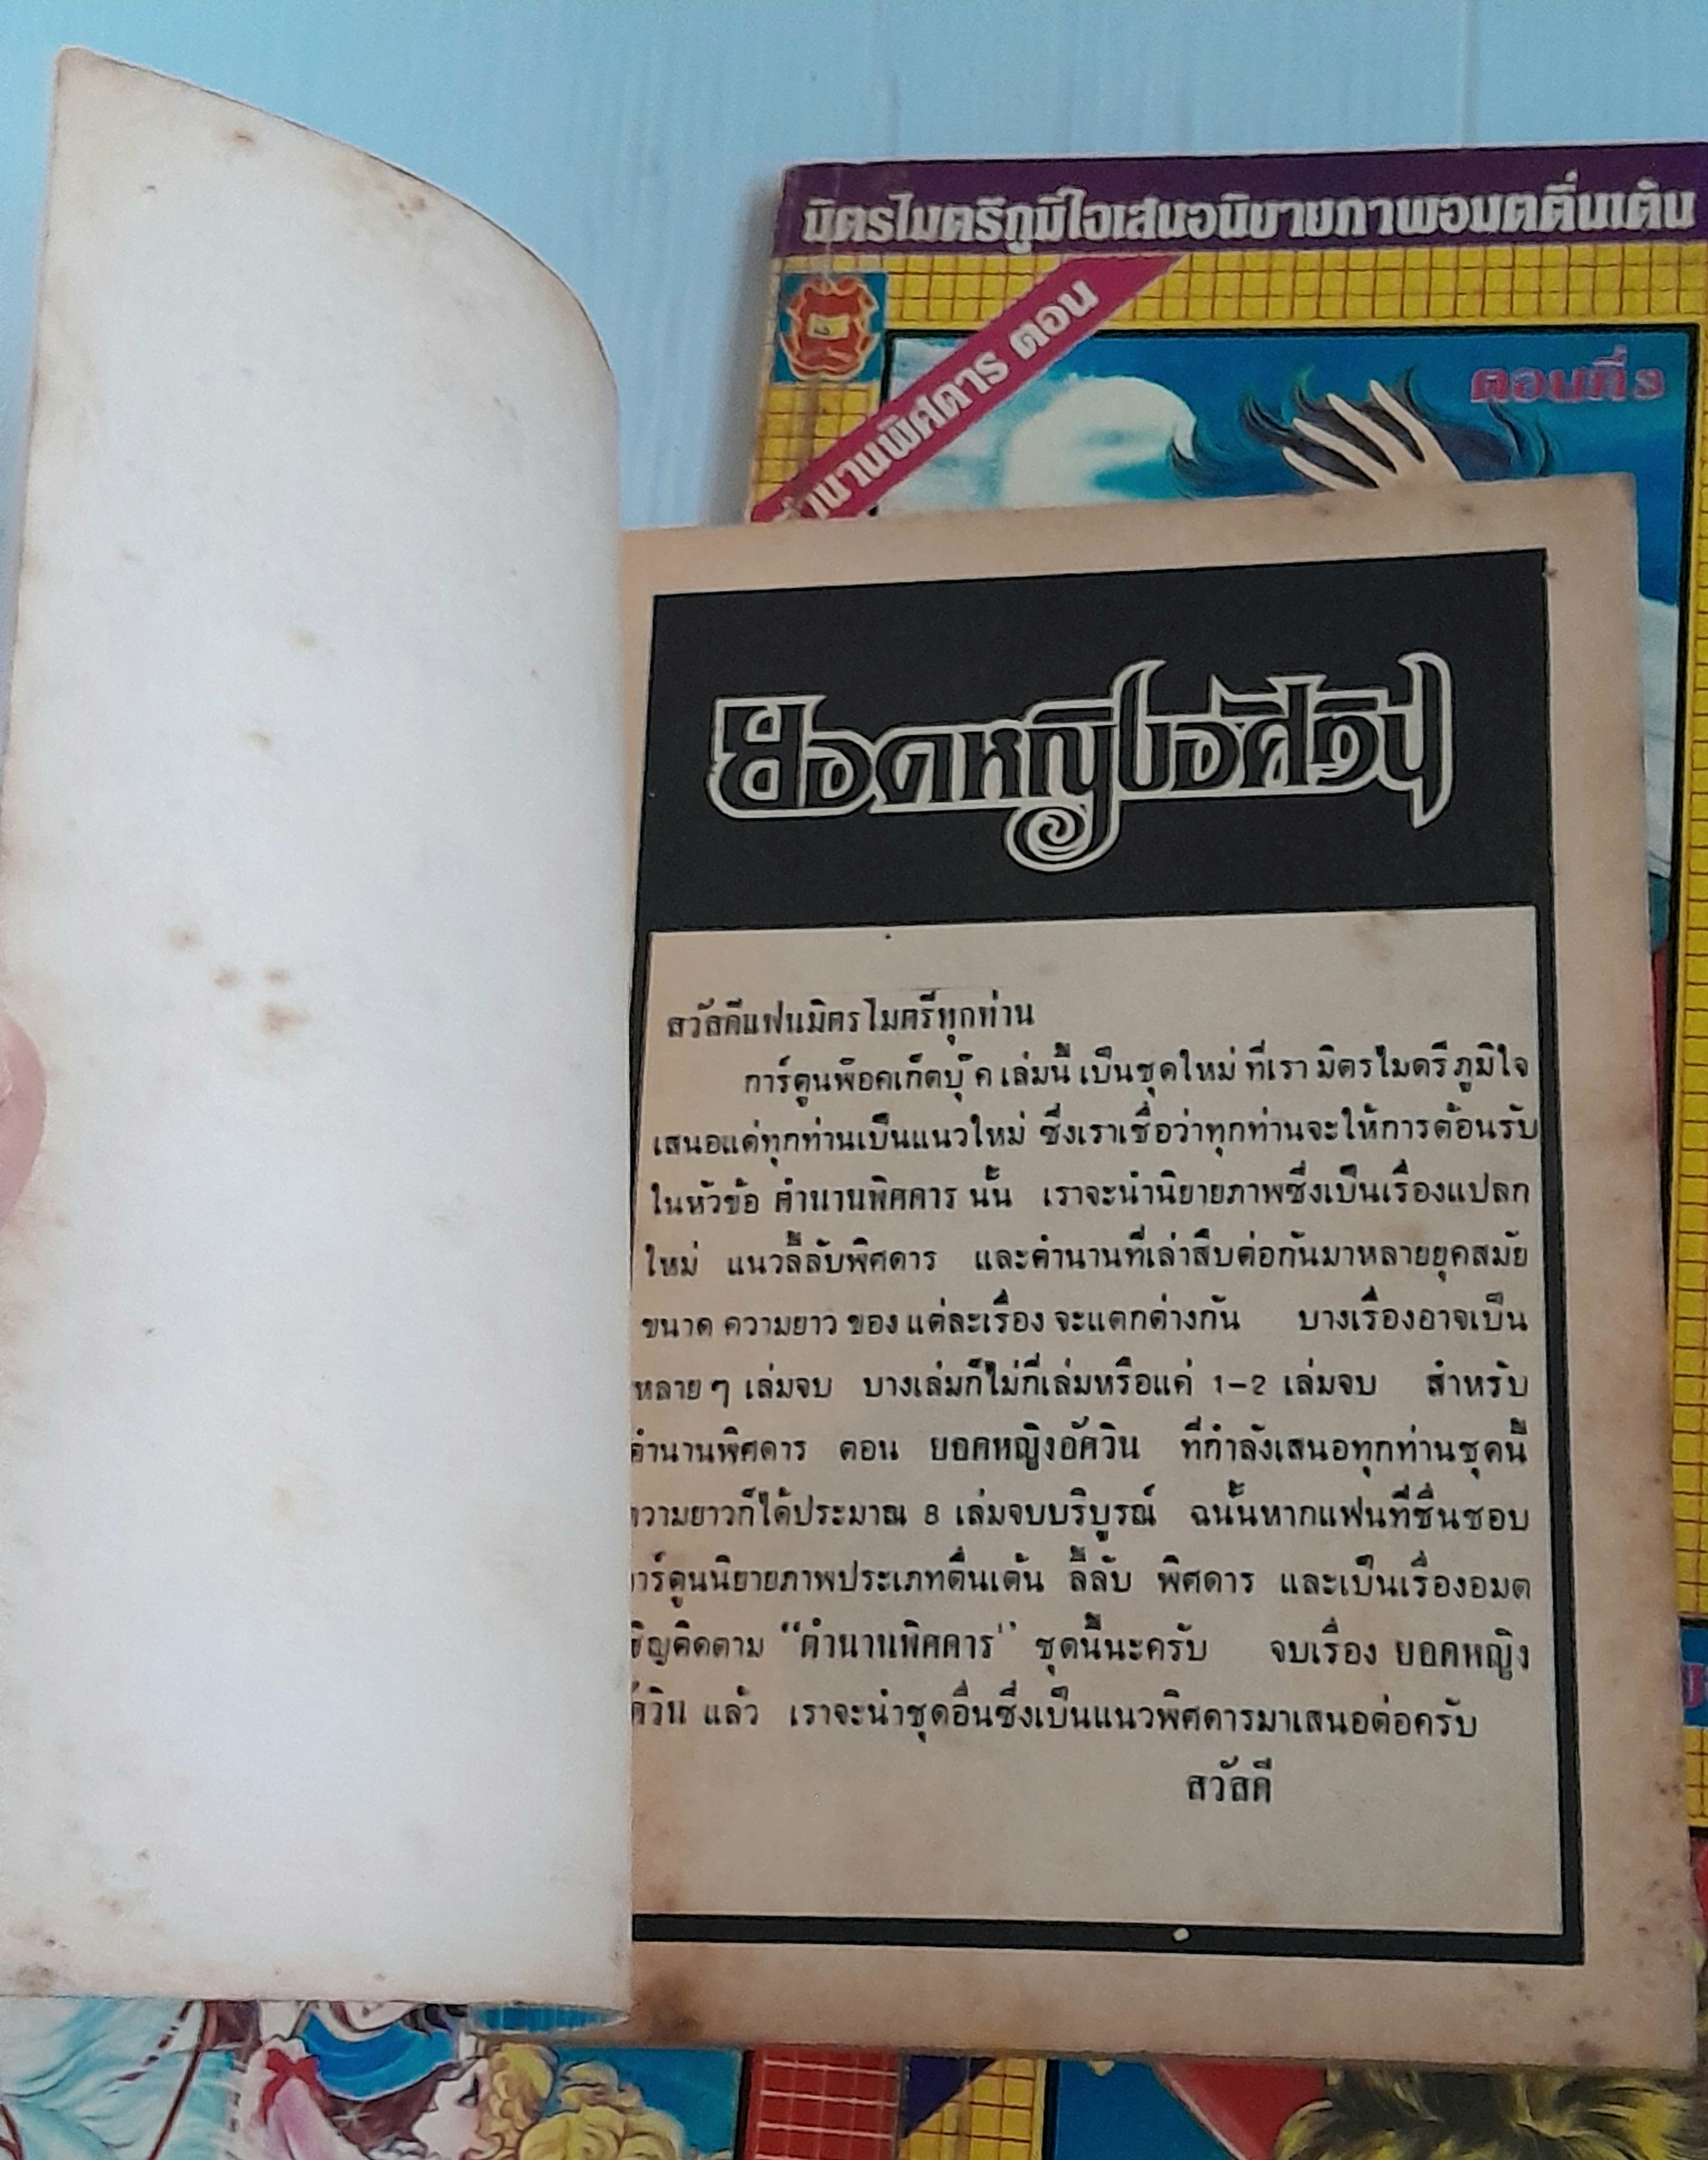 มิตรไมตรีภูมิใจเสนอนิยายภาพอมตตื่นเต้น
ตำนานพิศดาร ตอน
ตอนที่
ยอดหญิงอัศวิน
สวัสดีแฟนมิตรไมตรีทุกท่าน
การ์ตูนพ๊อคเก็ตบุ๊ค เล่มนี้ เป็นชุดใหม่ ที่เรา มิตรไมตรี ภูมิใจ
เสนอแด่ทุกท่านเป็นแนวใหม่ ซึ่งเราเชื่อว่าทุกท่านจะให้การต้อนรับ
ในหัวข้อ ตำนานพิศดาร นั้น เราจะนำนิยายภาพซึ่งเป็นเรื่องแปลก
ใหม่ แนวลี้ลับพิศดาร และตำนานที่เล่าสืบต่อกันมาหลายยุคสมัย
ขนาด ความยาว ของ แต่ละเรื่อง จะแตกต่างกัน บางเรื่องอาจเป็น
หลายๆ เล่มจบ บางเล่มก็ไม่กี่เล่มหรือแค่ 1-2 เล่มจบ สำหรับ
ตำนานพิศดาร ตอน ยอดหญิงอัศวิน ที่กำลังเสนอทุกท่านชุดนี้
ความยาวก็ได้ประมาณ 8 เล่มจบบริบูรณ์ ฉนั้นหากแฟนที่ชื่นชอบ
การ์ตูนนิยายภาพประเภทตื่นเต้น ลี้ลับ พิศดาร และเป็นเรื่องอมต
เชิญติดตาม "ตำนานพิศดาร" ชุดนี้นะครับ จบเรื่อง ยอดหญิง
อัศวิน แล้ว เราจะนำชุดอื่นซึ่งเป็นแนวพิศดารมาเสนอต่อครับ
สวัสดี